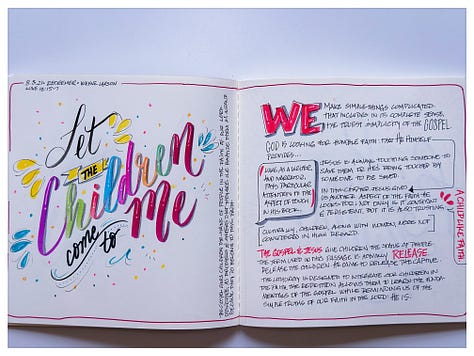 8.8.21 REDEEMER • WAYNE LARSON
LUKE 18:15-17
Let
THE
Children
come to
Me
WE
MAKE SIMPLE THINGS COMPLICATED.
THAT INCLUDES IN ITS COMPLETE SENSE,
THE TRUEST SIMPLICITY OF THE GOSPEL
GOD IS LOOKING FOR HUMBLE FAITH THAT HE HIMSELF
PROVIDES...
LUKE, AS A WRITER
AND NARRATOR,
PAYS PARTICULAR
ATTENTION TO THE
ASPECT OF TOUCH
IN HIS BOOK.
JESUS IS ALWAYS TOUCHING SOMEONE TO
SAVE THEM OR HIS BEING TOUCHED BY
SOMEONE TO BE SAVED.
IN THIS CHAPTER JESUS GIVES
US ANOTHER ASPECT OF THE FAITH HE
LOOKS FOR: NOT ONLY IS IT
& PERSISTENT, BUT IT IS ALSO TRUSTING.
A CHILDLIKE FAITH
CULTURALLY, CHILDREN, ALONG WITH WOMEN, WERE NOT
CONSIDERED IN HIGH REGARD.
THE GOSPEL & JESUS GIVE CHILDREN THE STATUS OF PEOPLE.
THE TERM USED IN THIS PASSAGE IS ACTUALLY RELEASE.
RELEASE THE CHILDREN. HE CAME TO RELEASE THE CAPTIVE.
THE LITURGY IS DESIGNED TO INTEGRATE OUR CHILDREN IN
THE FAITH. THE REPETITION ALLOWS THEM TO LEARN THE
MEETINGS OF THE GOSPEL WHILE REMINDING US OF THE
SIMPLE TRUTHS OF OUR FAITH IN THE LORD. HE IS.